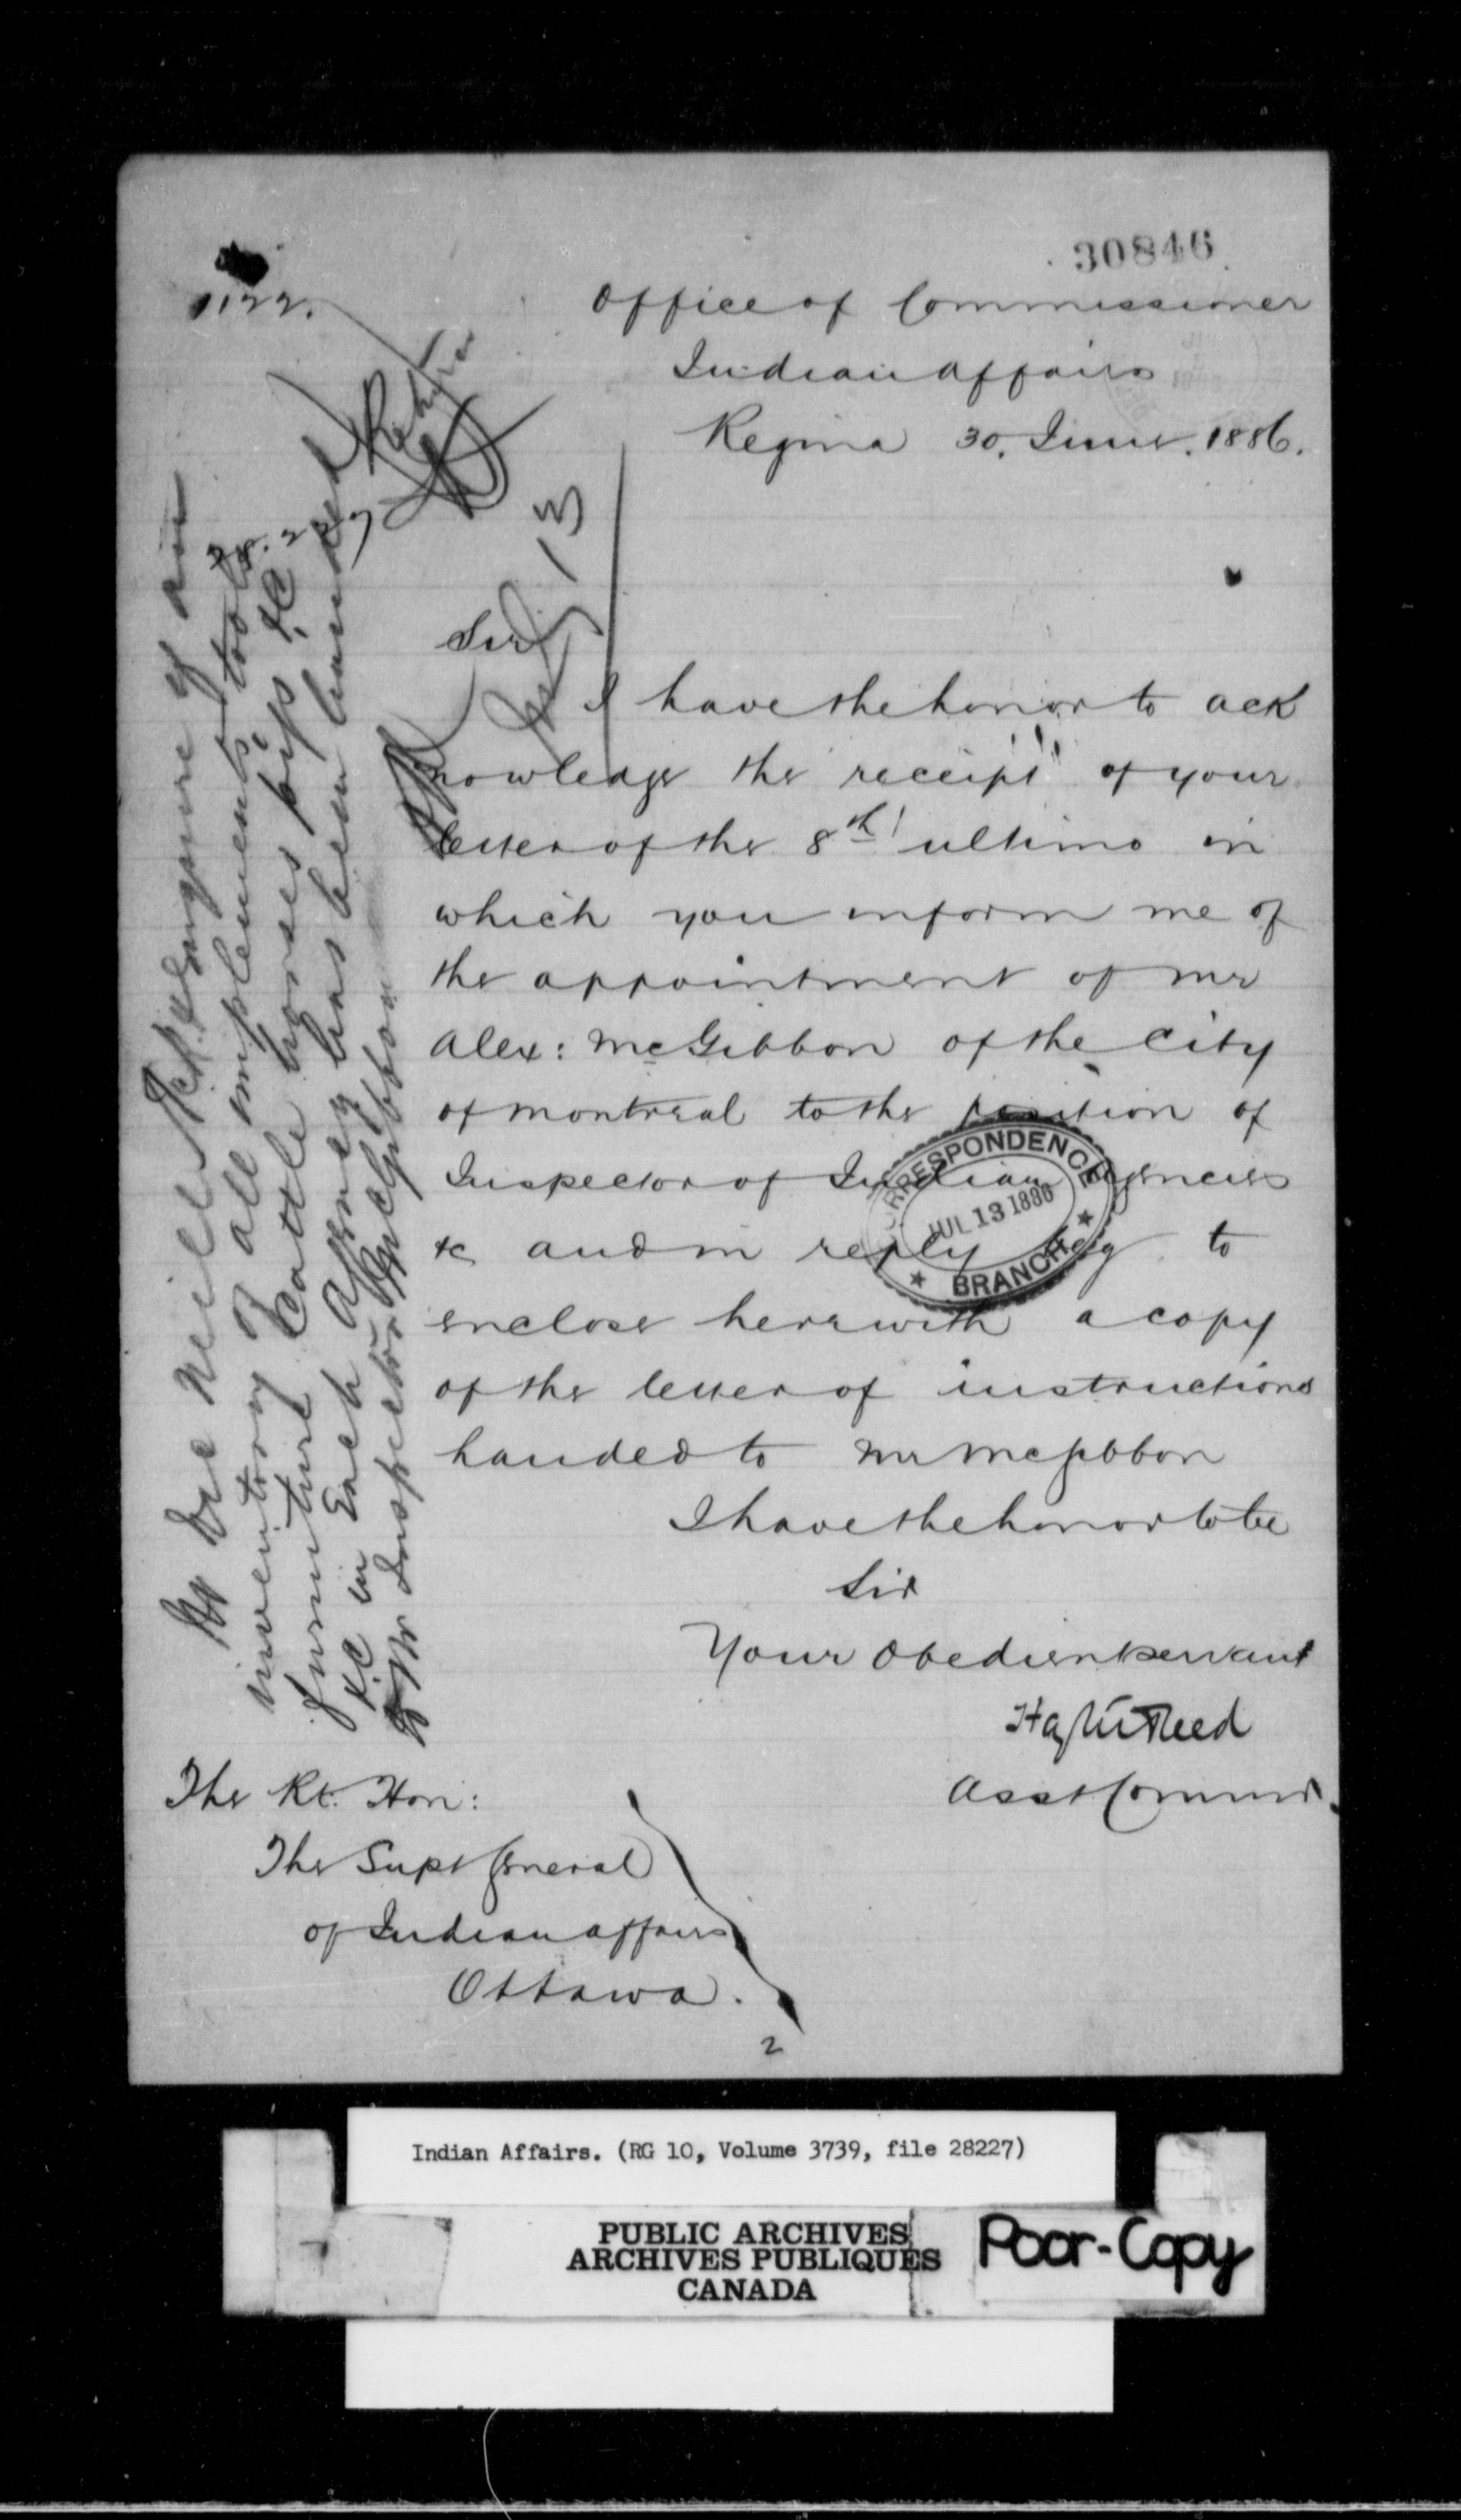 30846
1122.
Office of Commissioner
Indian Affairs
Regina 30. June. 1886.
Sir
I have the honor to ack
nowledge the receipt of your
letter of the 8th ultimo in
which you inform me of
the appointment of Mr
Alex: McGibbon of the City
of Montreal to the position of
Inspector of Indian Agencies
&c and in reply beg to
enclose herewith a copy
of the letter of instructions
handed to Mr McGibbon
I have the honor to be
Sir
Your Obedient servant
Hayter Reed
Asst Commr.
The Rt. Hon:
The Supt General
of Indian Affairs
Ottawa.
2
CORRESPONDENCE
JUL 13 1886
BRANCH
Mr McNeill Ack & Enquire if an
inventory of all implements, tools
furniture Cattle horses pigs &c
&c in Each Agency has been handed
to Mr Inspector McGibbon
Indian Affairs. (RG 10, Volume 3739, file 28227)
PUBLIC ARCHIVES
ARCHIVES PUBLIQUES
CANADA
Poor-Copy